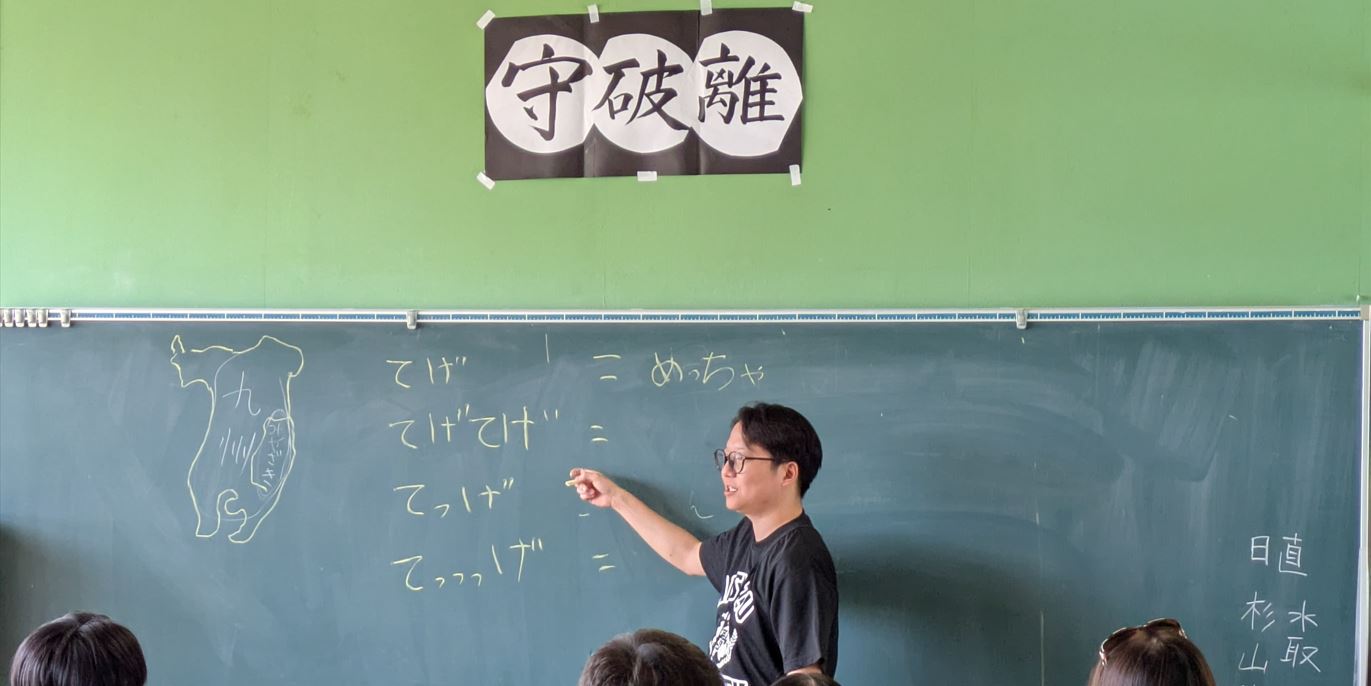 守破離
九州
みやざき
てげ = めっちゃ
てげてげ =
てっげ
てっっっげ =
日直
水取
杉山